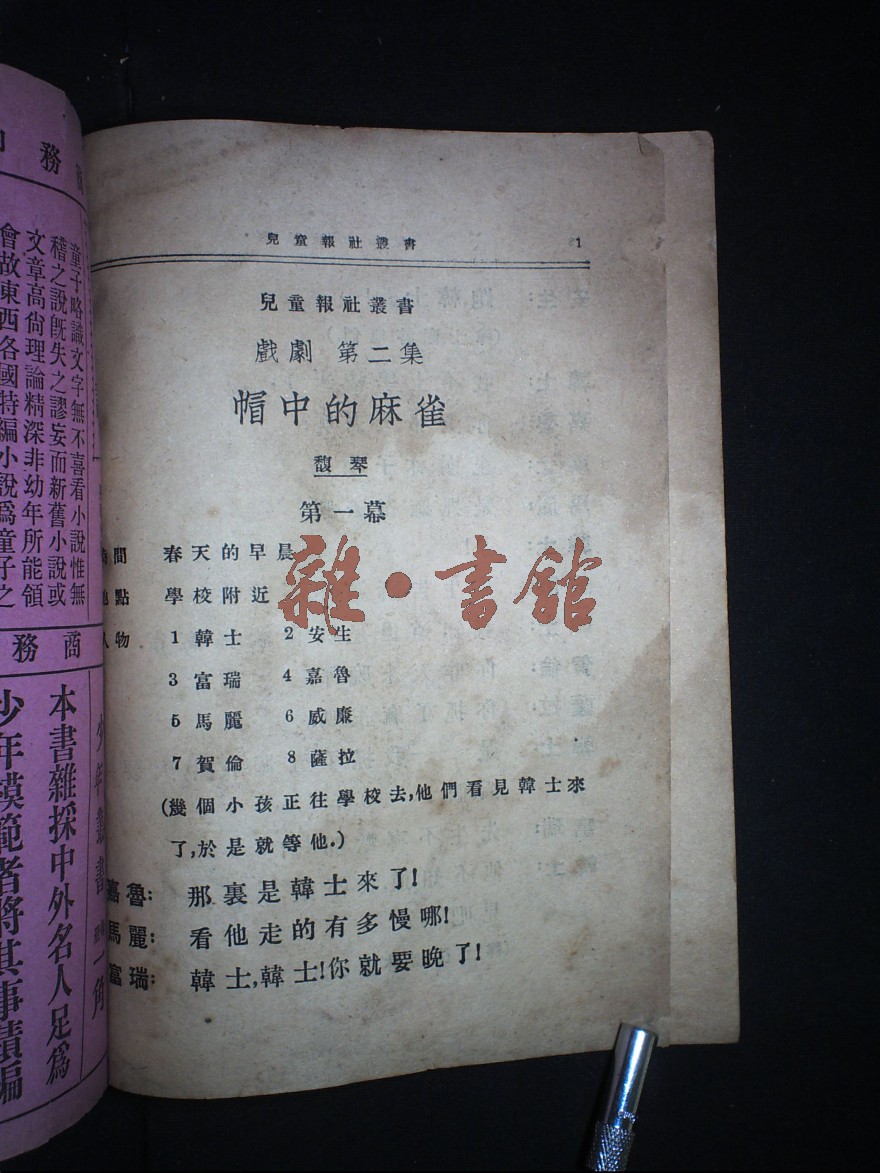 兒童報社叢書 1
兒童報社叢書
戲劇 第二集
帽中的麻雀
馥琴
第一幕
間 春天的早晨
點 學校附近
人物 1 韓士 2 安生
3 富瑞 4 嘉魯
5 馬麗 6 威廉
7 賀倫 8 薩拉
(幾個小孩正往學校去,他們看見韓士來
了,於是就等他.)
嘉魯: 那裏是韓士來了!
馬麗: 看他走的有多慢哪!
富瑞: 韓士,韓士!你就要晚了!
雜·書館
務
童子略識文字無不喜看小說惟無
稽之說既失之謬妄而新舊小說或
文章高尙理論精深非幼年所能領
會故東西各國特編小說爲童子之
商務
少年叢書
一角
本書雜採中外名人足爲
少年模範者將其事蹟編